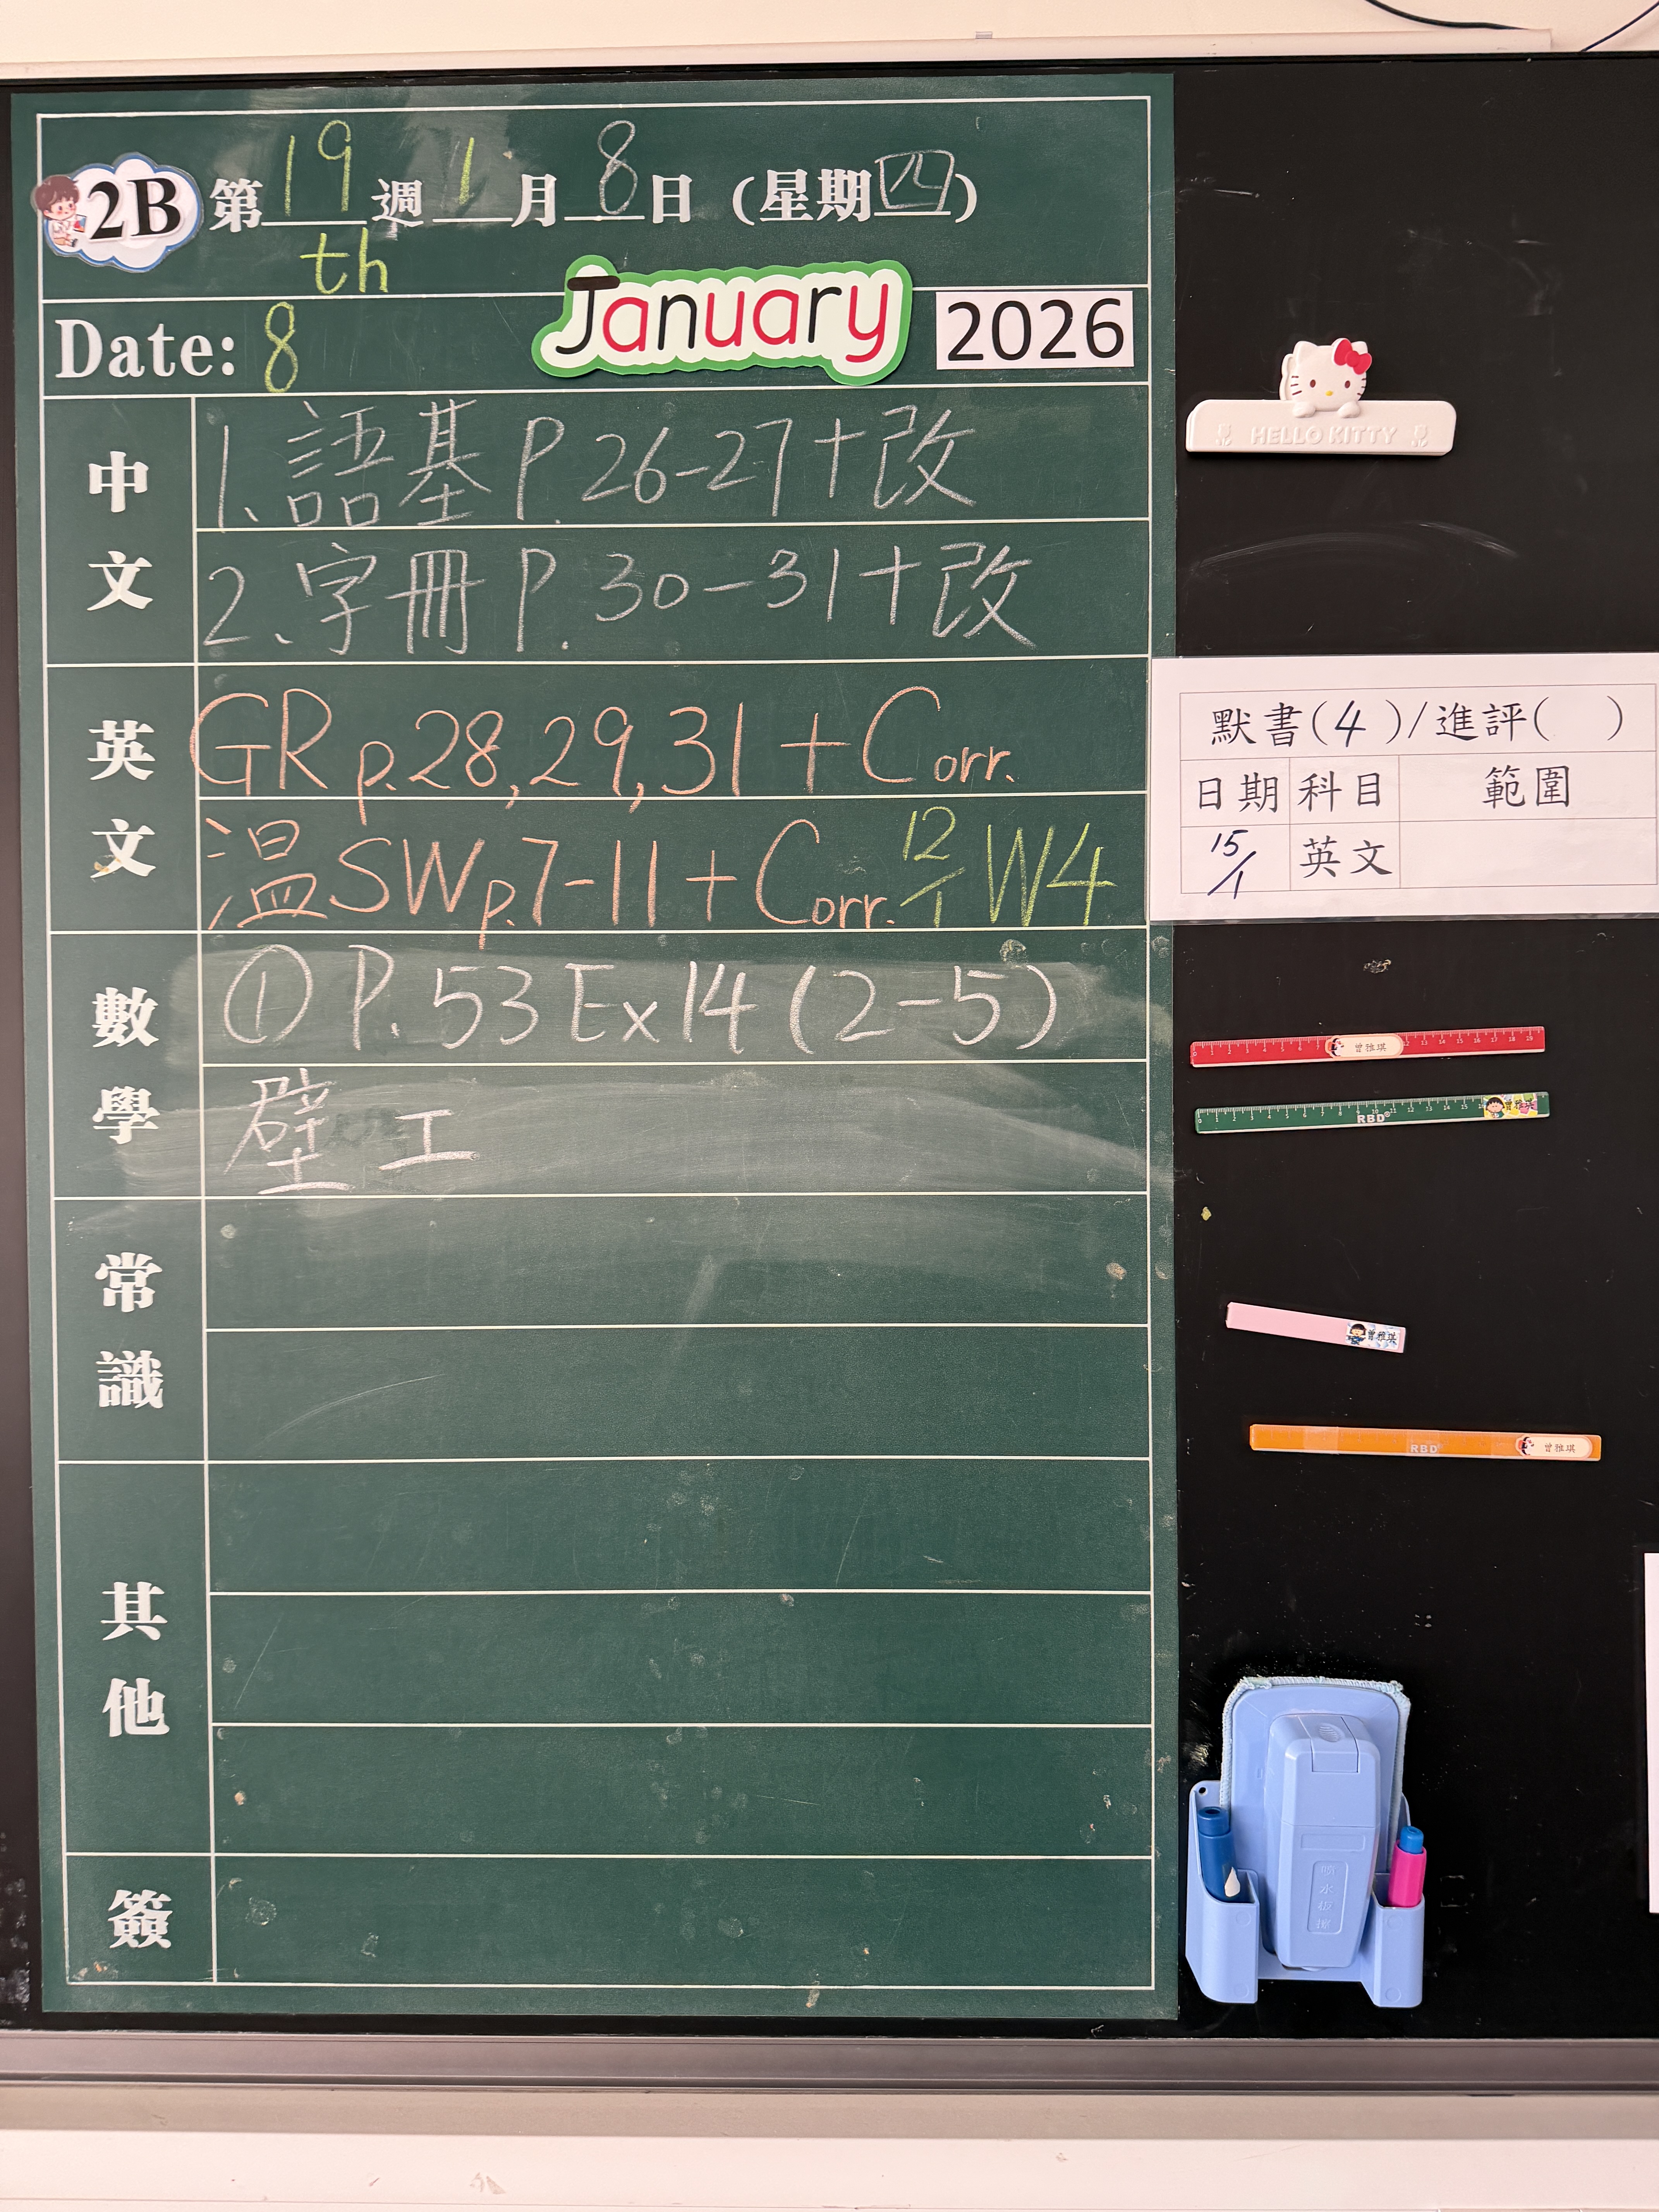 2B 第19週1月8日(星期四)
th
Date: 8 January 2026
中文
1、語基 P.26-27+改
2、字冊 P.30-31+改
英文
GR p.28,29,31 + Corr.
溫SW p.7-11 + Corr. 12/1 W4
數學
① P.53 Ex14 (2-5)
工
常識
其他
簽
HELLO KITTY
默書(4)/進評( )
日期 科目 範圍
15/1 英文
曾雅琪
RBD 曾雅琪
曾雅琪
RBD 曾雅琪
噴水板擦